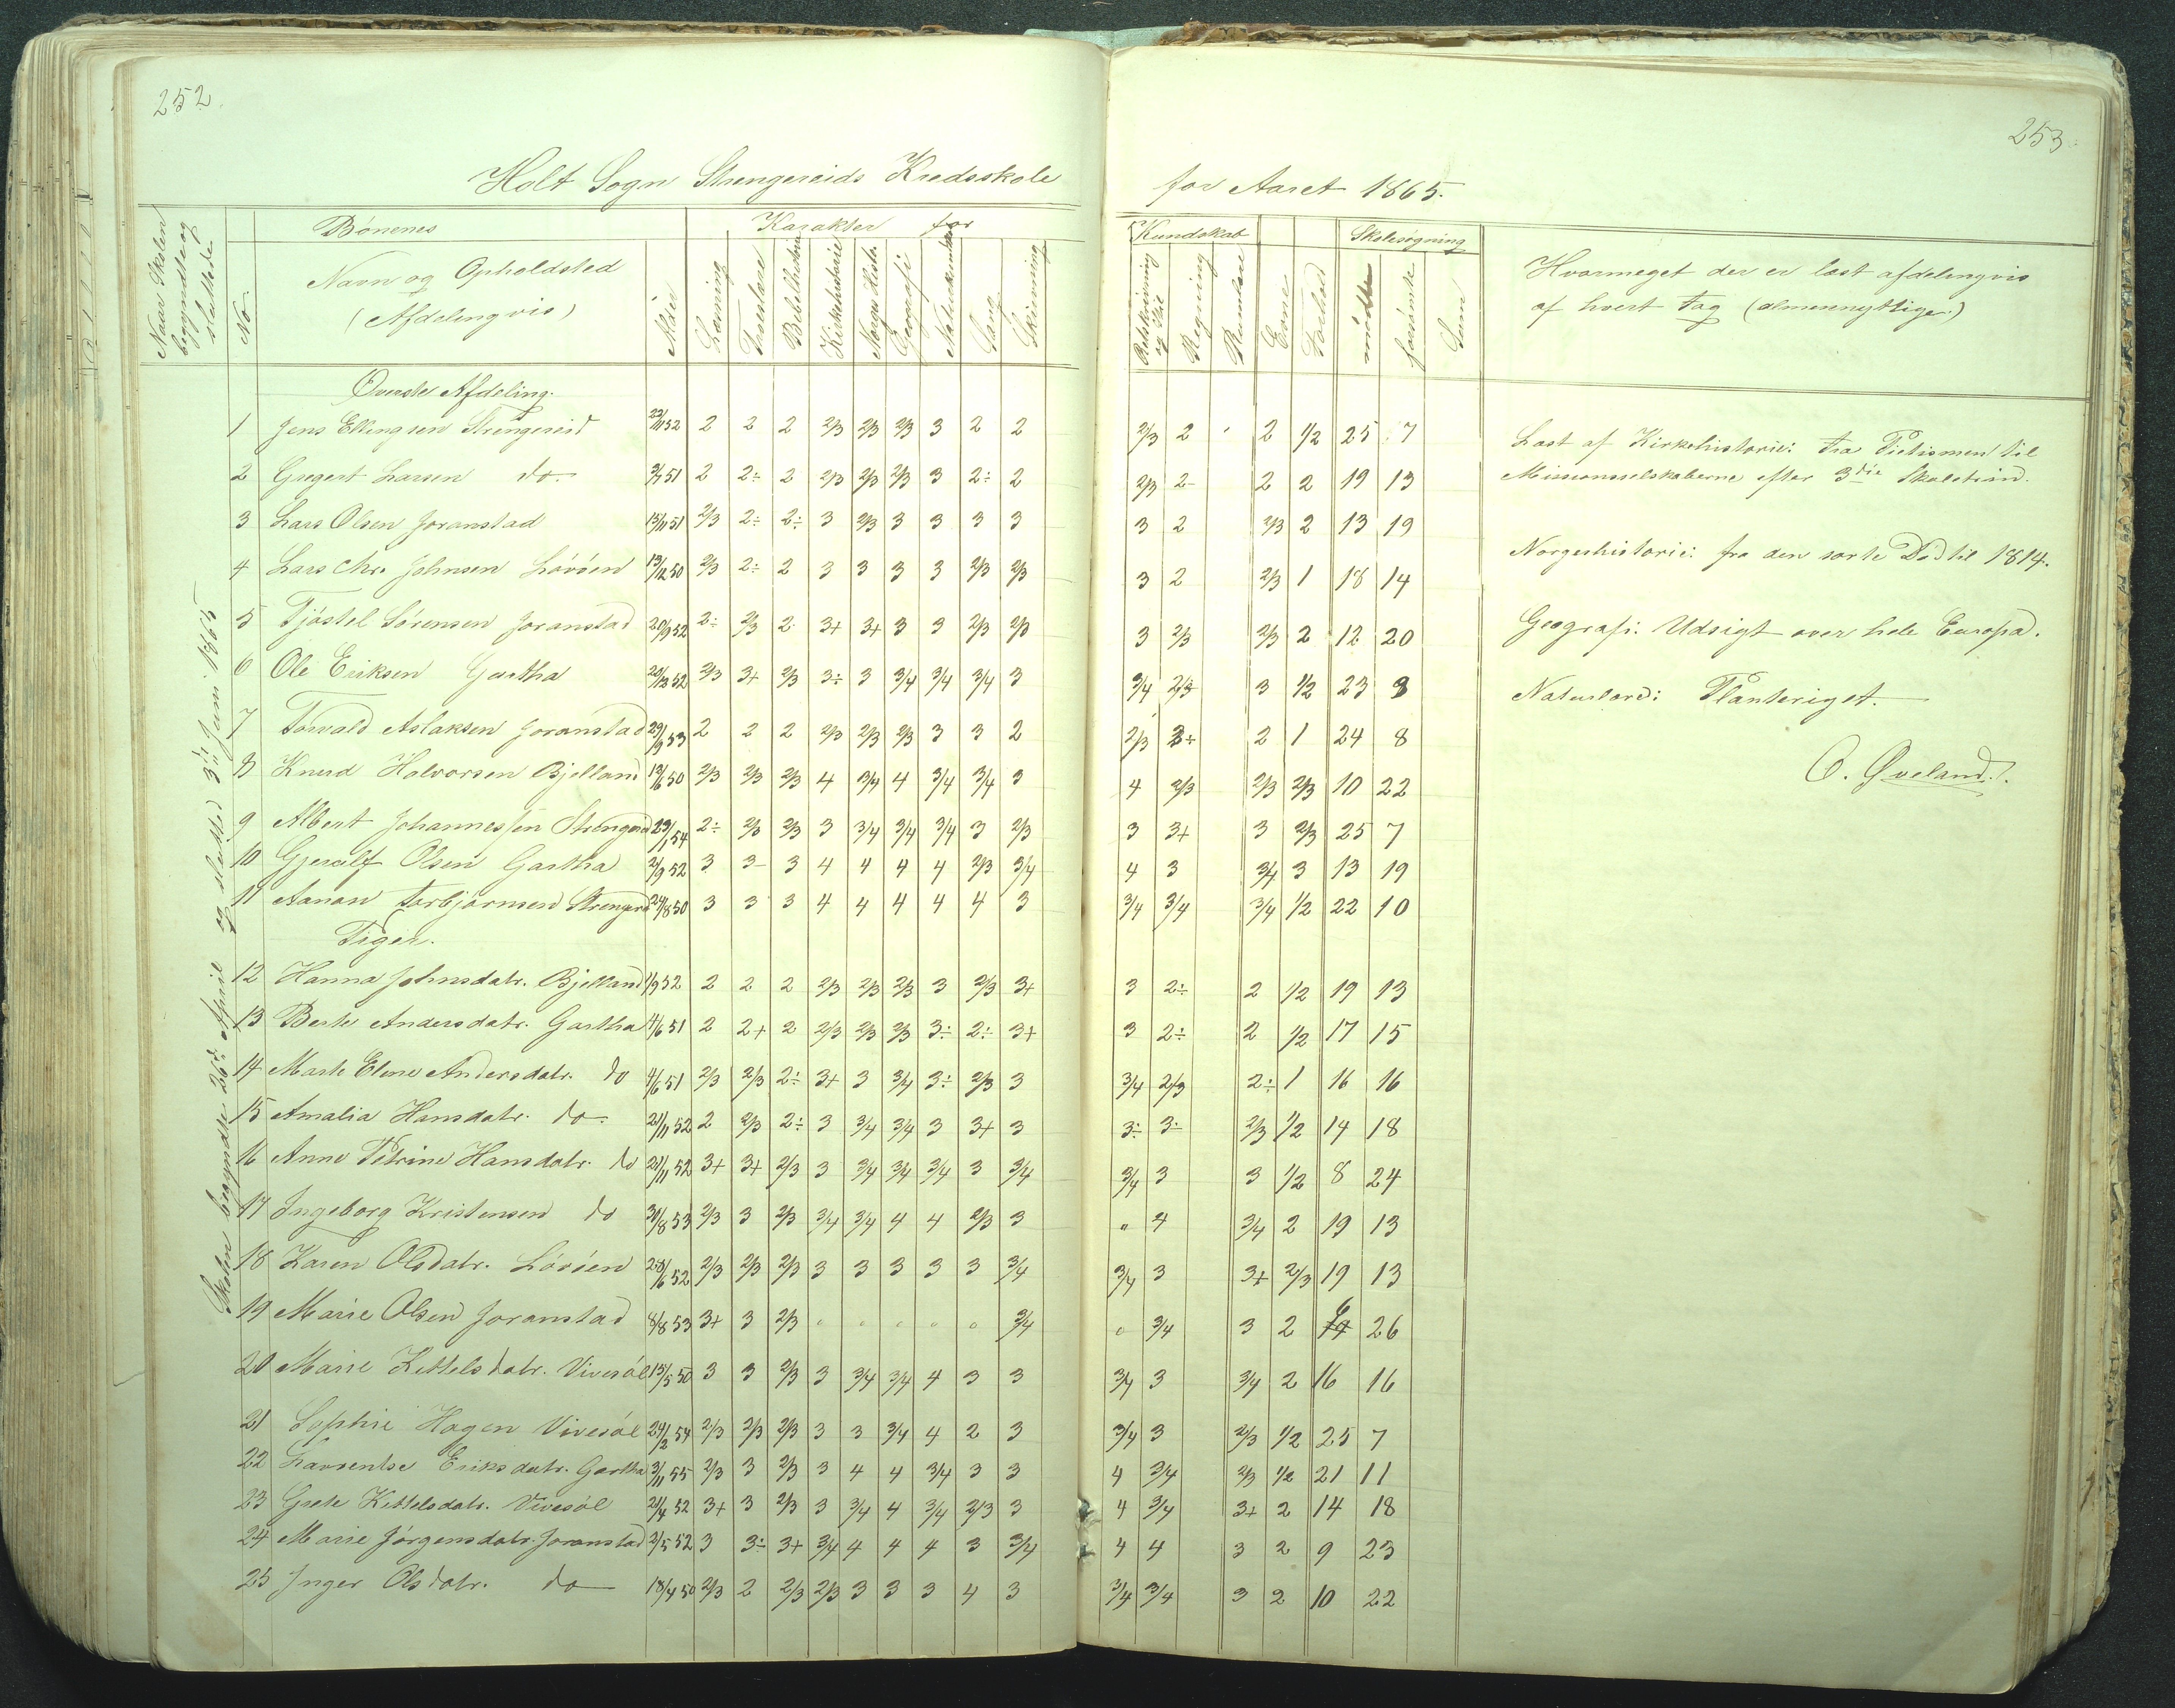 252.
Holt Sogn Strengereids Kredsskole
Naar Skolen begyndte og sluttede
No.
Børnenes
Navn og Opholdsted
(Afdelingvis)
Alder
Karakter for
Læsning
Troeslære
Bibelhistorie
Kirkehistorie
Norges Histr.
Geografi
Naturkundskab
Sang
Skrivning
Skolen begyndte 26de April og sluttede 3die Juni 1865
Øverste Afdeling.
1 Jens Ellingsen Strengereid 22/11 52 2 2 2 2/3 2/3 2/3 3 2 2
2 Gregert Larsen do. 51 2 2÷ 2 2/3 2/3 2/3 3 2÷ 2
3 Lars Olsen Joranstad 15/11 51 2/3 2÷ 2÷ 3 2/3 3 3 3 3
4 Lars Chr. Johnsen Løvøen 13/12 50 2/3 2÷ 2 3 3 3 3 2/3 2/3
5 Tjøstel Sørensen Joranstad 20/9 52 2÷ 2/3 2 3+ 3+ 3 3 2/3 2/3
6 Ole Eriksen Gartha 52 2/3 3+ 2/3 3÷ 3 3/4 3/4 3/4 3
7 Torvald Aslaksen Joranstad 29/9 53 2 2 2 2/3 2/3 2/3 3 3 2
8 Knud Halvorsen Bjelland 50 2/3 2/3 2/3 4 3/4 4 3/4 3/4 3
9 Albert Johannessen Strengereid 29/1 54 2÷ 2/3 2/3 3 3/4 3/4 3/4 3 2/3
10 Gjerulf Olsen Gartha 2/9 52 3 3- 3 4 4 4 4 2/3 3/4
11 Aanon Torbjørnsen Strengereid 29/8 50 3 3 3 4 4 4 4 4 3
Piger.
12 Hanna Johnsdatr. Bjelland 1/9 52 2 2 2 2/3 2/3 2/3 3 2/3 3+
13 Berte Andersdatr. Gartha 4/6 51 2 2+ 2 2/3 2/3 2/3 3÷ 2÷ 3+
14 Marte Elene Andersdatr. do 4/6 51 2/3 2/3 2÷ 3+ 3 3/4 3÷ 2/3 3
15 Amalia Hansdatr. do. 21/11 52 2 2/3 2÷ 3 3/4 3/4 3 3+ 3
16 Anne Petrine Hansdatr. do 21/11 52 3+ 3+ 2/3 3 3/4 3/4 3/4 3 3/4
17 Ingeborg Kristensen do 30/8 53 2/3 3 2/3 3/4 3/4 4 4 2/3 3
18 Karen Olsdatr. Løvøen 28/6 52 2/3 2/3 2/3 3 3 3 3 3 3/4
19 Marie Olsen Joranstad 8/8 53 3+ 3 2/3 " " " " " 3/4
20 Marie Kittelsdatr. Vivesøl 15/5 50 3 3 2/3 3 3/4 3/4 4 3 3
21 Sophie Hagen Vivesøl 24/2 54 2/3 2/3 2/3 3 3 3/4 4 2 3
22 Laurentse Eriksdatr. Gartha 3/11 55 2/3 3 2/3 3 4 4 3/4 3 3
23 Grete Kittelsdatr. Vivesøl 21/4 52 3+ 3 2/3 3 3/4 4 3/4 2/3 3
24 Marie Jørgensdatr. Joranstad 2/5 52 3 3÷ 3+ 3/4 4 4 4 3 3/4
25 Inger Olsdatr. do 18/4 50 2/3 2 2/3 2/3 3 3 3 4 3
253.
for Aaret 1865.
Kundskab
Retskrivning og Stil
Regning
Rumlære
Evne
Forhold
Skolesøgning
mødte
forsømte
Sum
Hvormeget der er læst afdelingvis
af hvert Fag (almennyttige)
2/3 2 2 1/2 25 7
2/3 2- 2 2 19 13
3 2 2/3 2 13 19
3 2 2/3 1 18 14
3 2/3 2/3 2 12 20
3/4 2/3 3 1/2 23 9
2/3 3÷ 2 1 24 8
4 2/3 2/3 2/3 10 22
3 3+ 3 2/3 25 7
4 3 3/4 3 13 19
3/4 3/4 3/4 1/2 22 10
3 2÷ 2 1/2 19 13
3 2÷ 2 1/2 17 15
3/4 2/3 2÷ 1 16 16
3÷ 3÷ 2/3 1/2 14 18
3/4 3 3 1/2 8 24
" 4 3/4 2 19 13
3/4 3 3+ 2/3 19 13
" 3/4 3 2 6 26
3/4 3 3/4 2 16 16
3/4 3 2/3 1/2 25 7
4 3/4 2/3 1/2 21 11
4 3/4 3+ 2 14 18
4 4 3 2 9 23
3/4 3/4 3 2 10 22
Læst af Kirkehistorie: fra Pietismen til
Missionsselskaberne efter 3die Skoletrin.
Norgeshistorie: fra den sorte Død til 1814.
Geografi: Udsigt over hele Europa.
Naturlære: Planteriget.
O. Øveland.